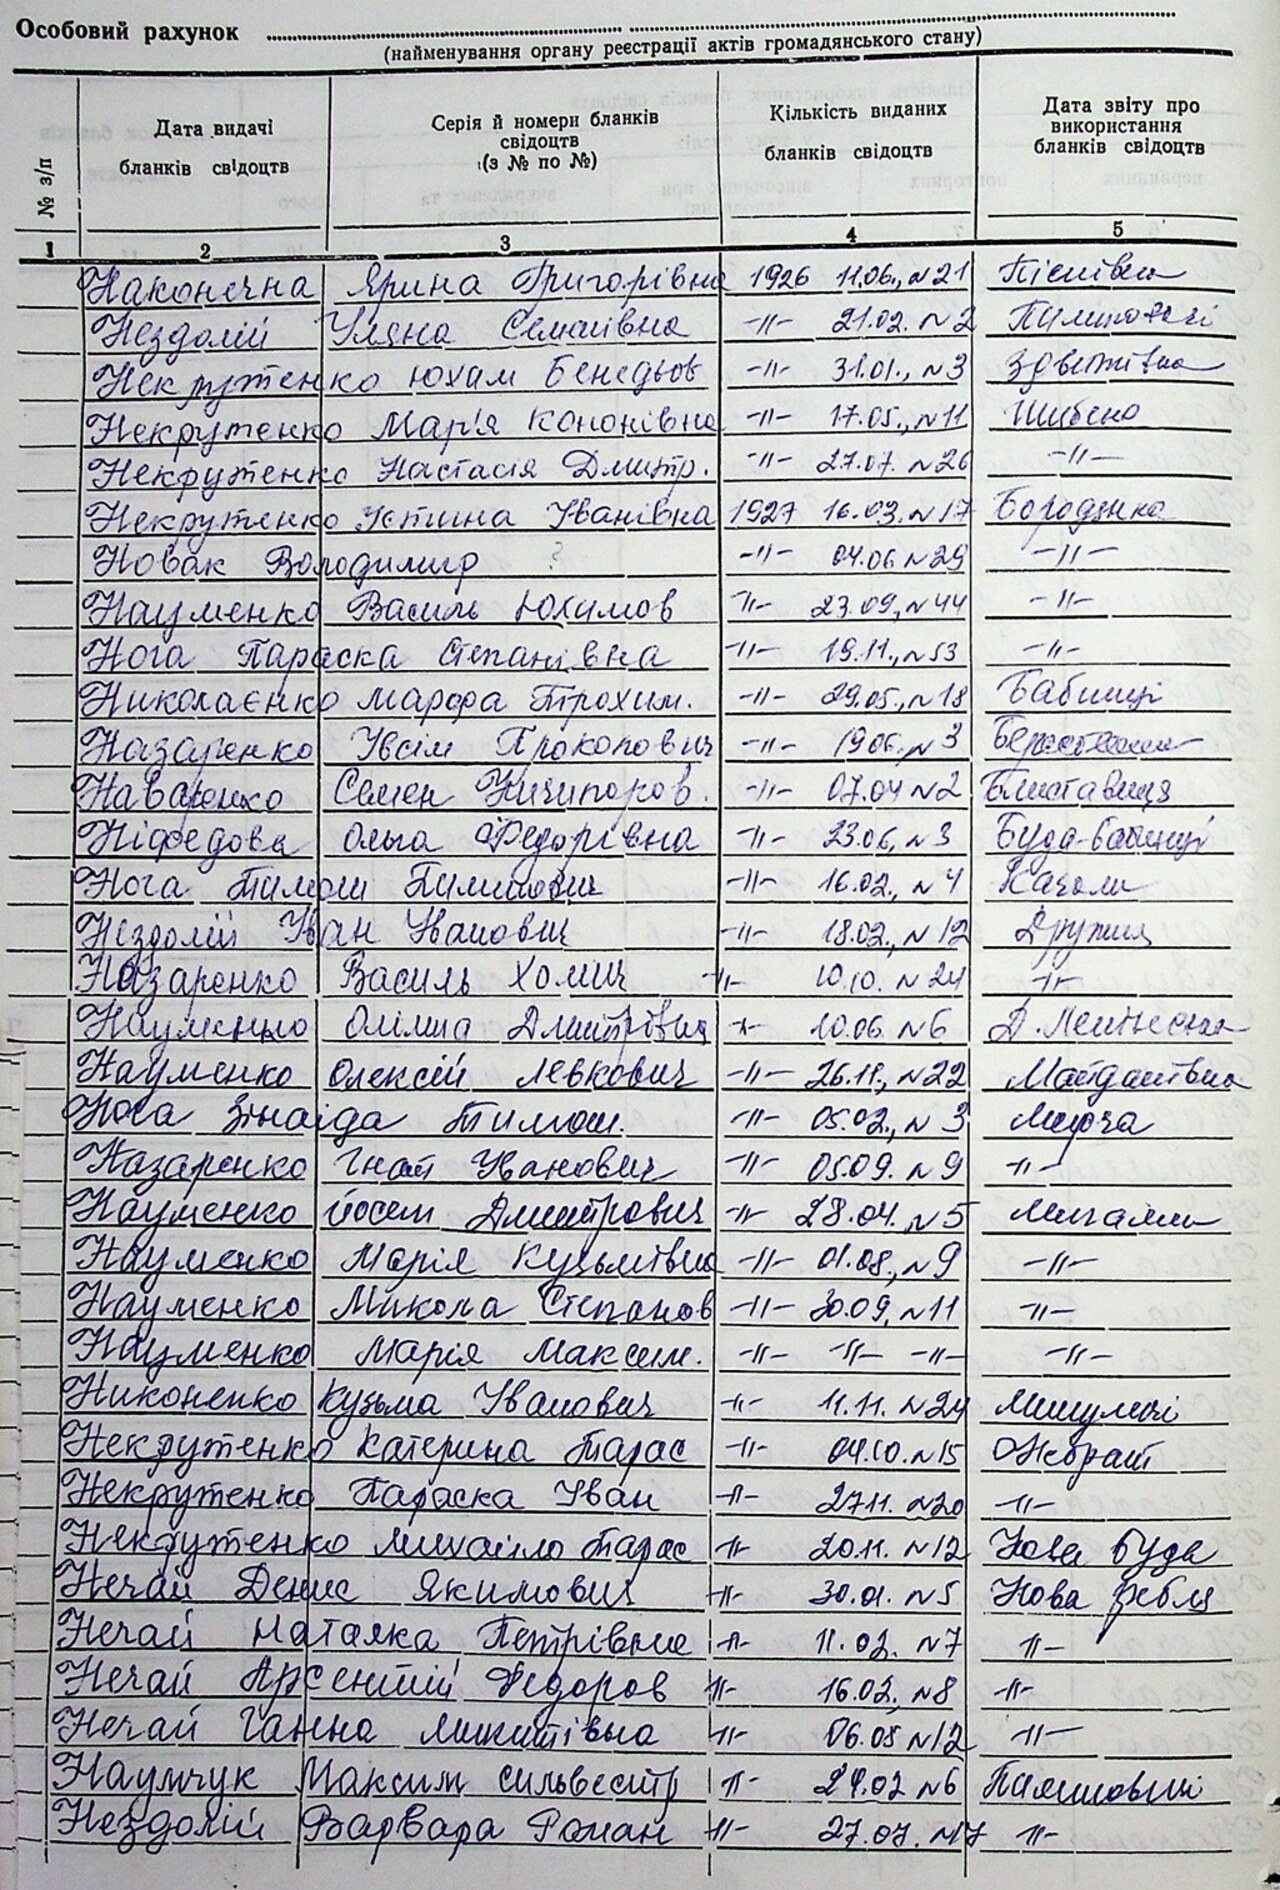 Особовий рахунок
(найменування органу реєстрації актів громадянського стану)
№ з/п
Дата видачі бланків свідоцтв
Серія й номери бланків свідоцтв (з № по №)
Кількість виданих бланків свідоцтв
Дата звіту про використання бланків свідоцтв
1 2 3 4 5
Наконечна Ярина Григорівна 1926 11.06., N21 Пісківка
Нездолій Уляна Семенівна -"- 21.02. N2 Пилиповичі
Некрутенко Юхим Бенедьов -"- 31.01., N3 Здвижівка
Некрутенко Мар'я Кононівна -"- 17.05., N11 Шибена
Некрутенко Настасія Дмитр. -"- 27.07. N26 -"-
Некрутенко Устина Іванівна 1927 16.03. N17 Бородянка
Новак Володимир ? -"- 04.06 N29 -"-
Науменко Василь Юхимов -"- 23.09, N44 -"-
Нога Параска Степанівна -"- 19.11., N53 -"-
Николаєнко Марфа Трохим. -"- 29.05., N18 Бабинці
Назаренко Івсім Прокопович -"- 19.06., N3
Наваренко Семен Ничипоров. -"- 07.04 N2 Блиставиця
Ніфедова Ольга Федорівна -"- 23.06, N3 Буда-Бабинці
Нога Тимош Пилипович -"- 16.02., N4 Качали
Нездолій Іван Іванович -"- 18.02., N12 Дружня
Назаренко Василь Хомич -"- 10.10. N24 -"-
Науменко Дмитрівна -"- 10.06. N6 Д.
Науменко Олексій Левкович -"- 26.11., N22 Майданівка
Нога Зінаїда Тимош. -"- 05.02., N3 Мирча
Назаренко Гнат Іванович -"- 05.09. N9 -"-
Науменко Йосип Дмитрович -"- 28.04. N5 Мигалки
Науменко Марія Кузьмівна -"- 01.08., N9 -"-
Науменко Микола Степанов -"- 30.09, N11 -"-
Науменко Марія Максим. -"- -"- -"- -"-
Никоненко Кузьма Іванович -"- 11.11. N24 Микуличі
Некрутенко Катерина Тарас -"- 04.10. N15 Небрат
Некрутенко Параска Іван -"- 27.11. N20 -"-
Некрутенко Михайло Тарас -"- 20.11. N12 Нова Буда
Нечай Денис Якимович -"- 30.01. N5 Нова Гребля
Нечай Наталка Петрівна -"- 11.02. N7 -"-
Нечай Арсентій Федоров -"- 16.02., N8 -"-
Нечай Ганна Микитівна -"- 06.05 N12 -"-
Наумчук Максим Сильвестр -"- 24.02 N6 Пилиповичі
Нездолій Варвара Роман -"- 27.07. N17 -"-